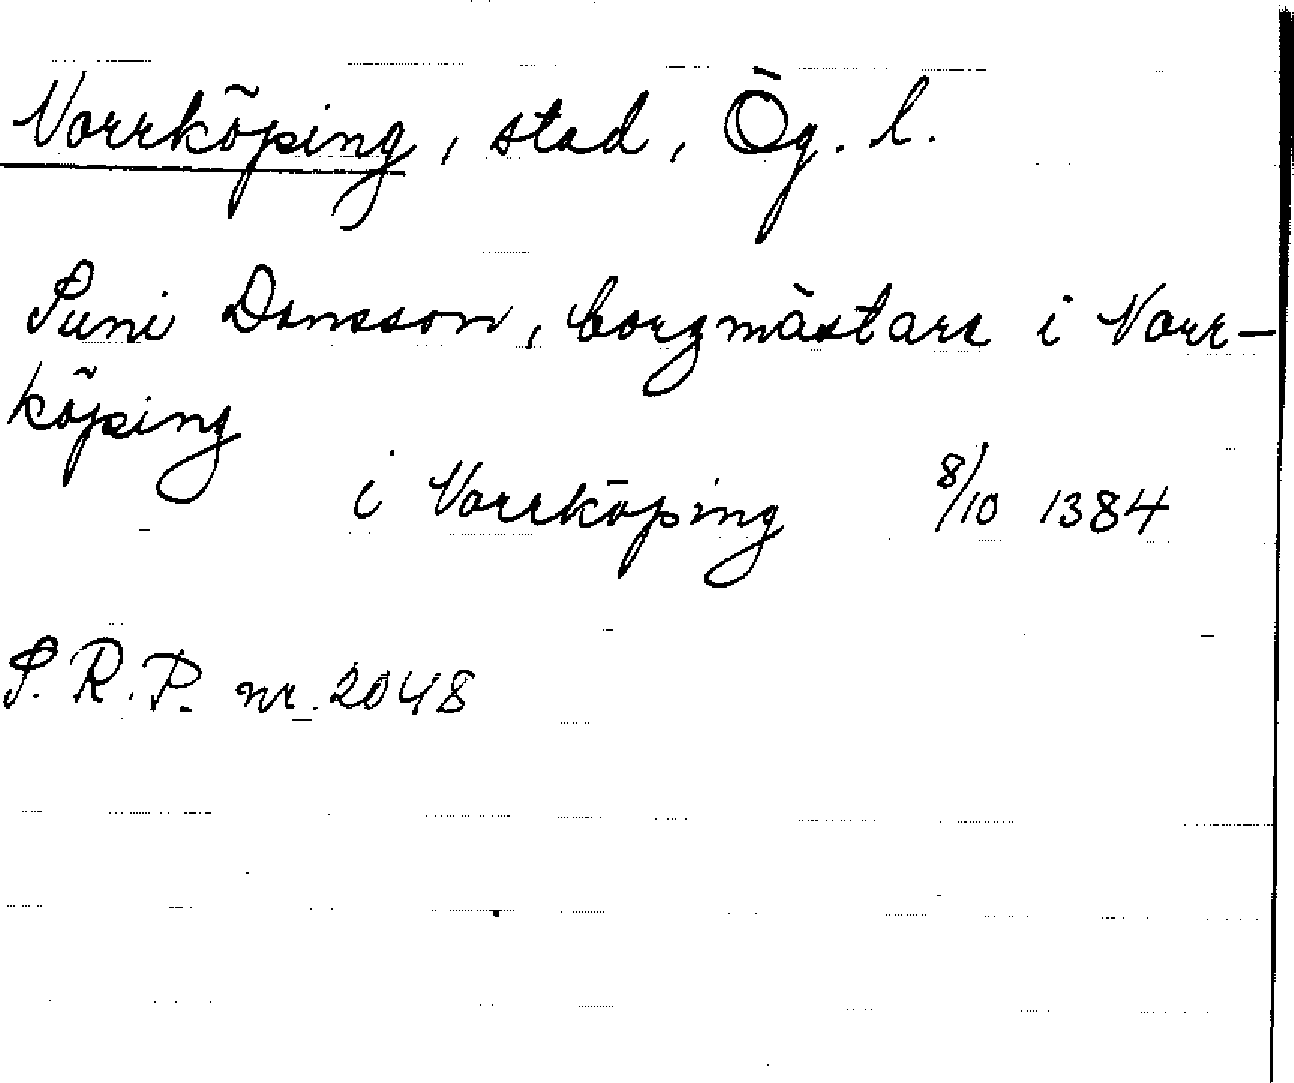 Norrköping, stad, Ög. l.
Suni Dansson, borgmästare i Norr-
köping
i Norrköping 8/10 1384
S.R.P. nr. 2048